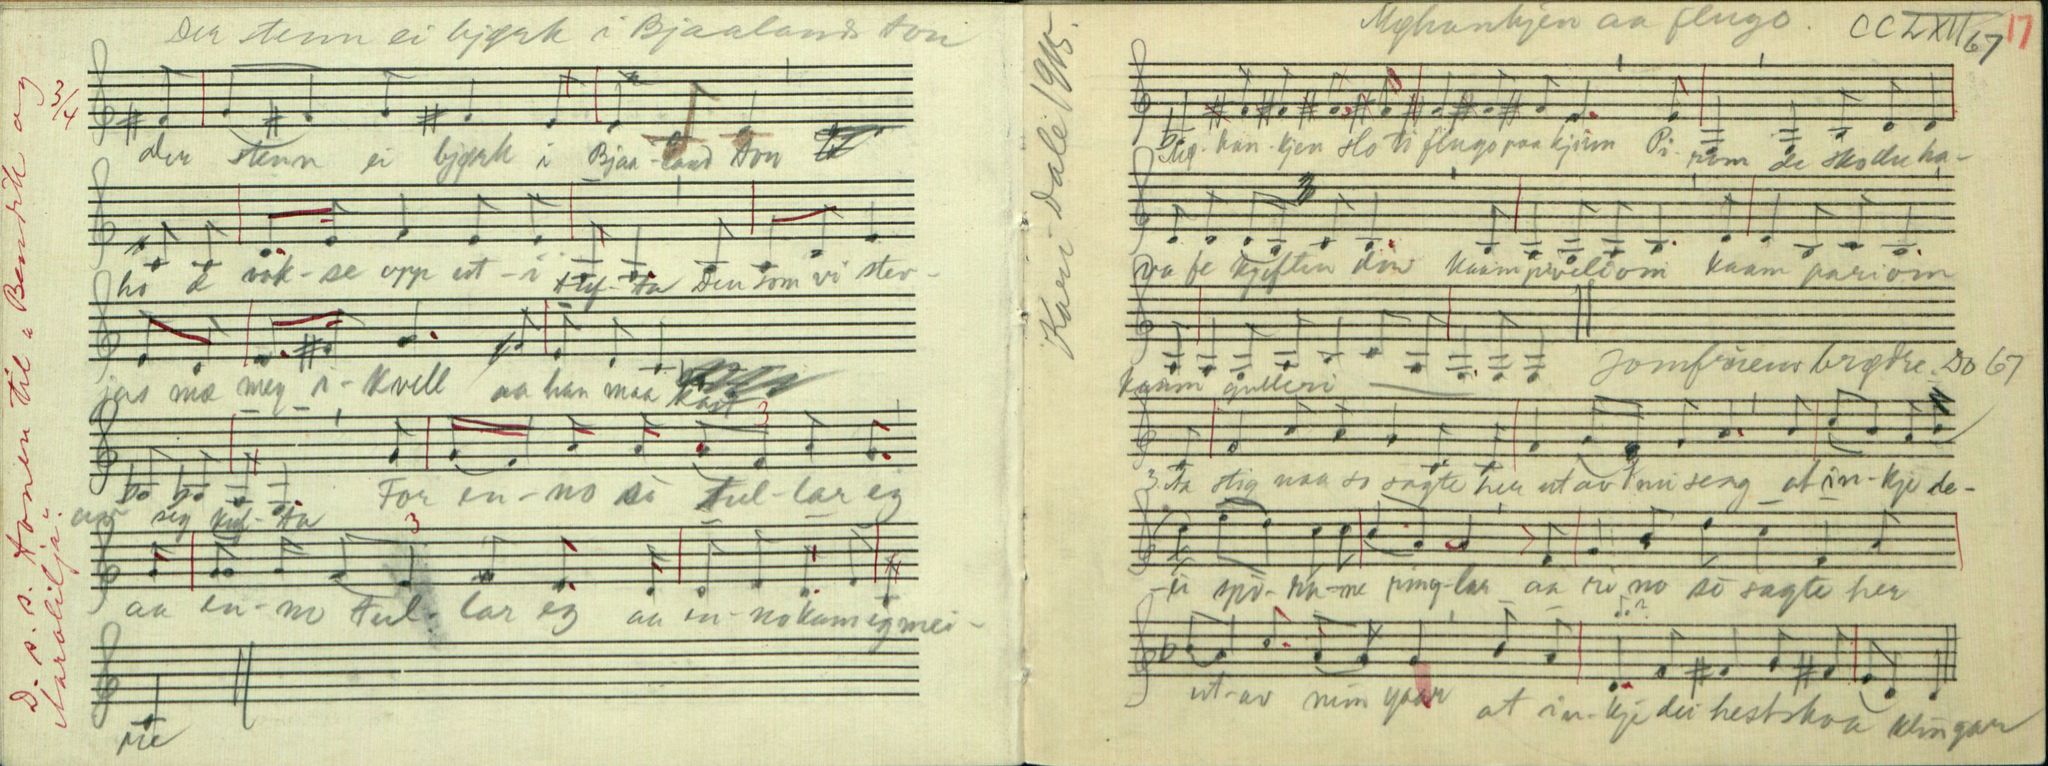 Der stenn ei bjørk i Bjaalands ton
3/4
der stenn ei bjørk i Bjaa-land ton
ho æ vok-se opp ut-i tuf-ta Den som vi stev-
jas mæ meg i-kvell aa han maa kast
seg kuf-ta For en-no så tul-lar eg
3
aa en-no tul-lar eg aa en-no kam eg mei-
3
re
D. s. s. tonen til "Bendik og
Aarolilja".
Kari Dale 1915.
Møkankjen aa flugo.
CCLXII
67
17
Mø-kan-kjen slo ti flugo paa kjinn Pi-rom de sko du ha-
va fe kjeften din kaam piveliom kaam pariom
kaam gulleri
Jomfruens brødre. Do 67
3. Aa stig naa so sagte her ut av mi seng at in-kje de-
-ei spo-ra-ne ring-lar aa ri no so sagte her
ut-av min gaar at in-kje dei hestskoa klingar